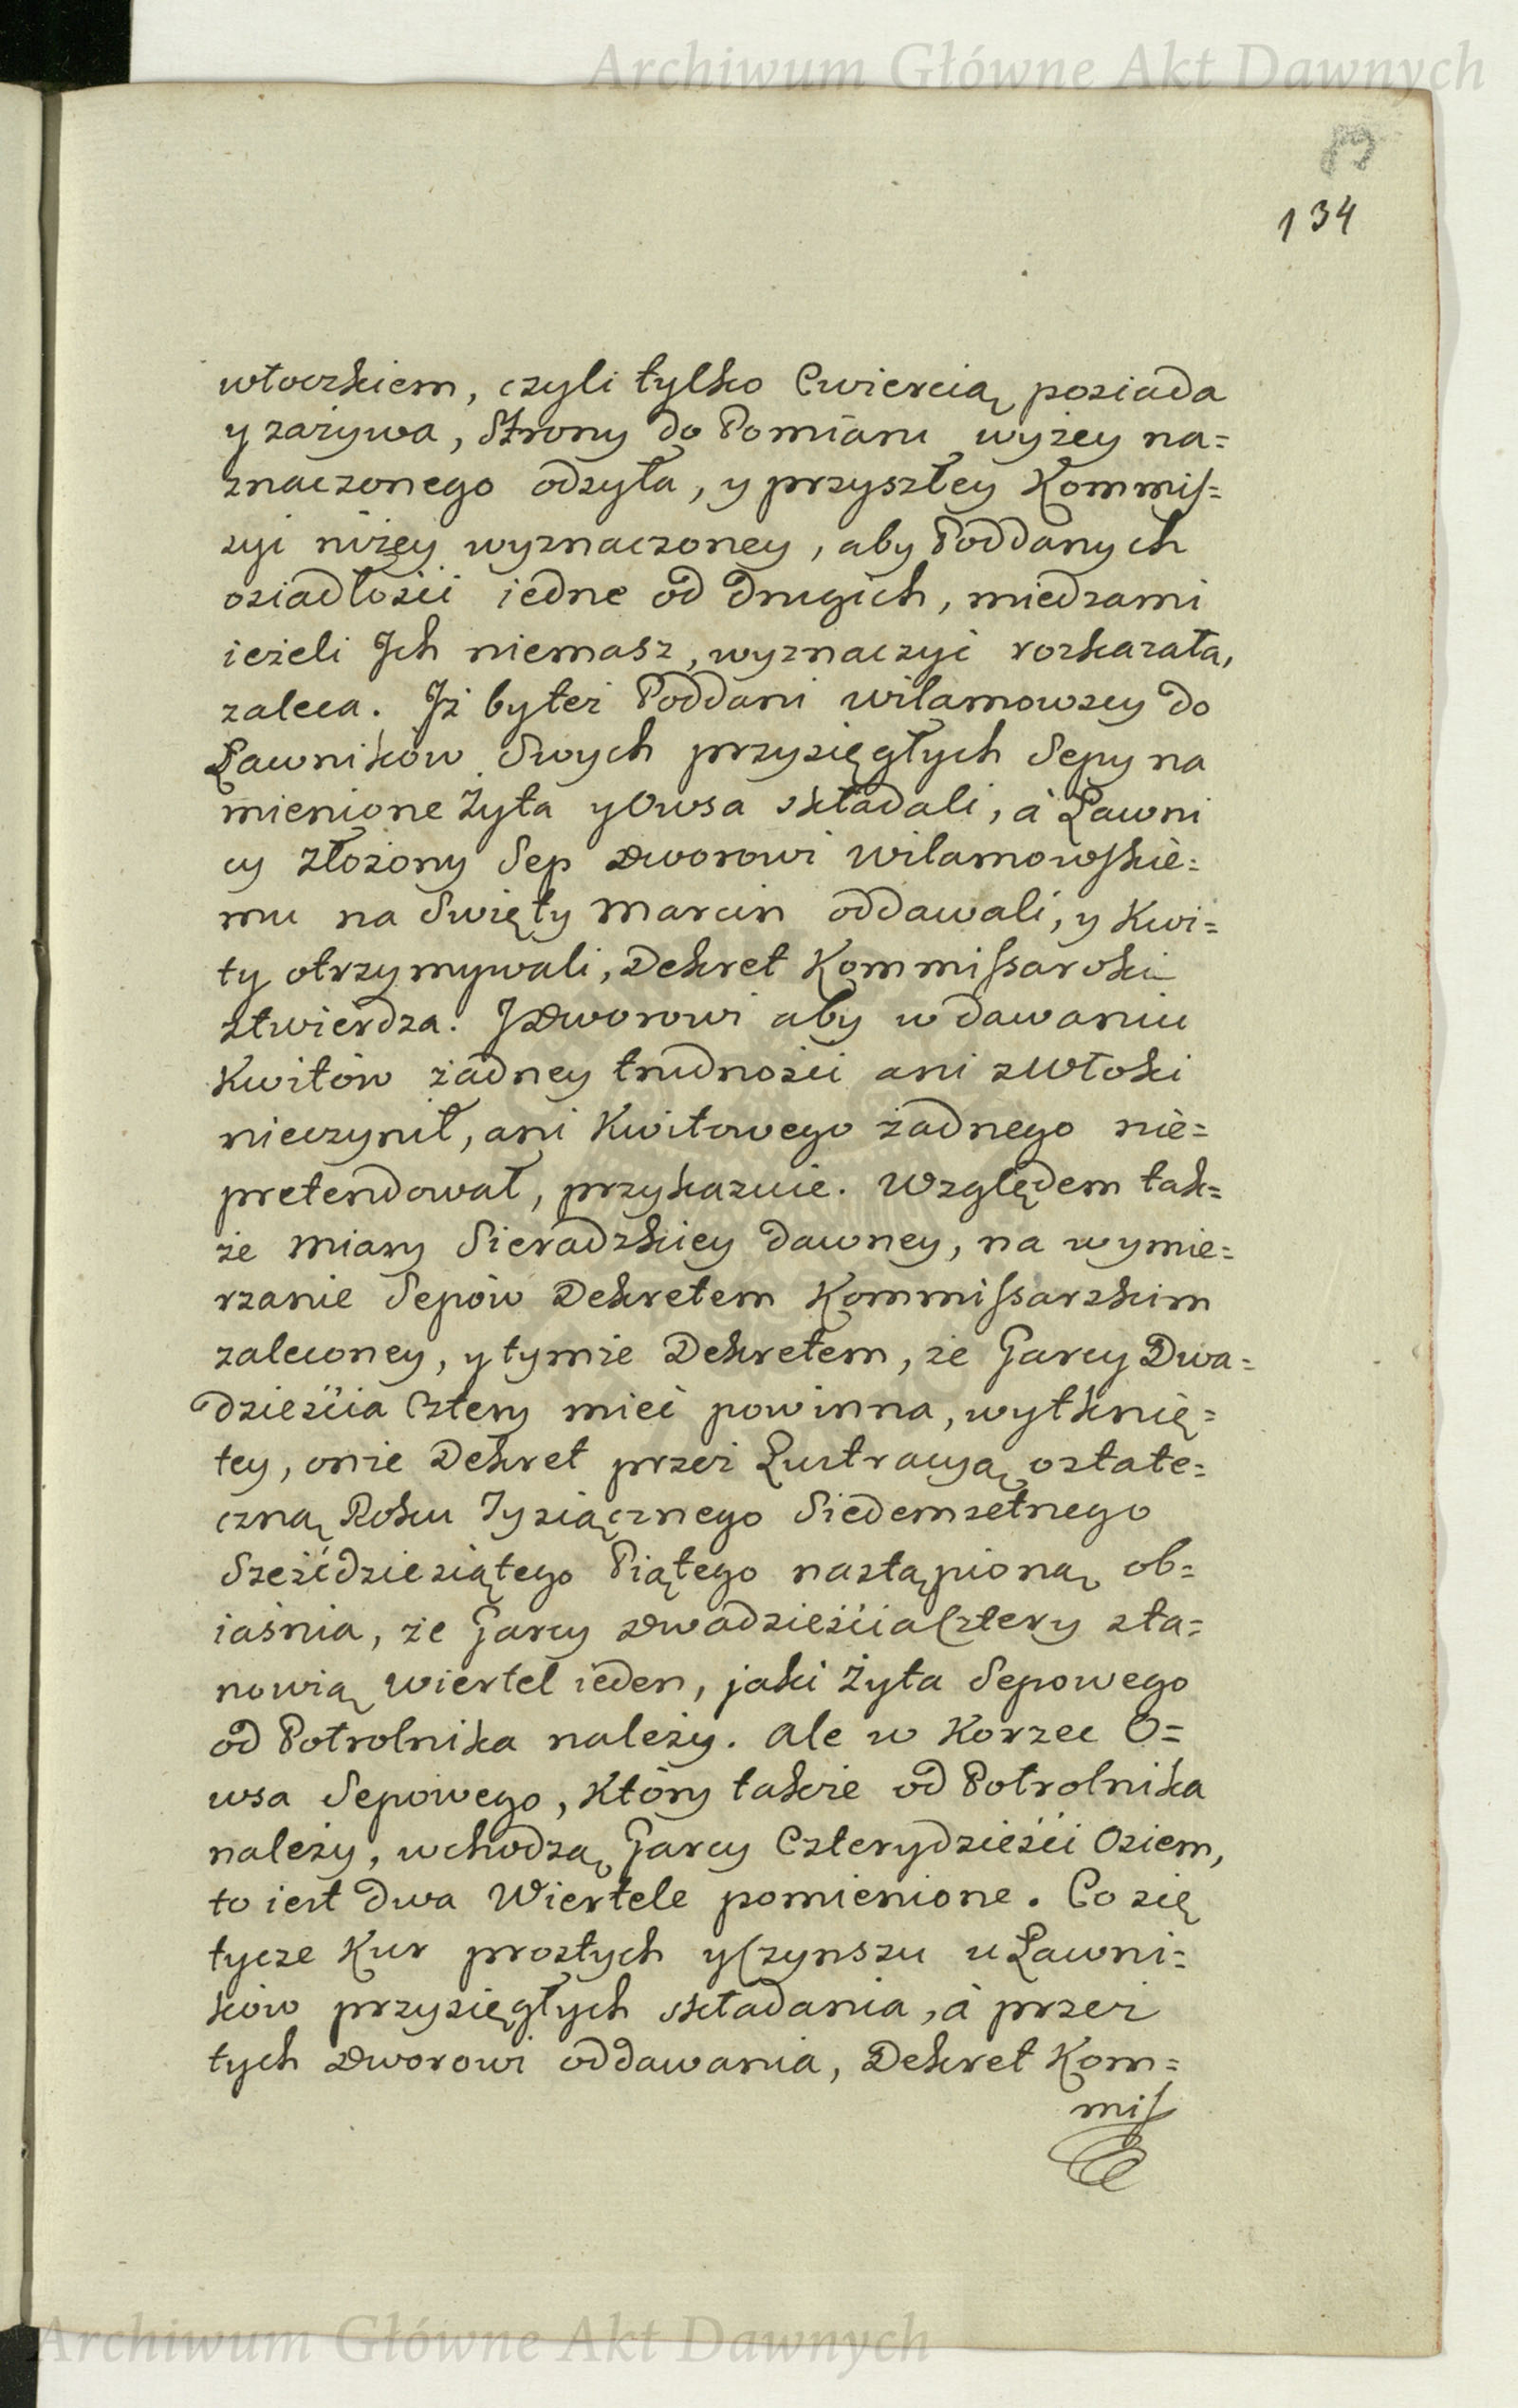 Archiwum Główne Akt Dawnych
134
włoczkiem, czyli tylko Cwiercią posiada
y zażywa, Strony do Pomiaru wyżey na=
znaczonego odsyła, y przyszłey Kommis=
syi niżey wyznaczoney, aby Poddanych
osiadłości iedne od drugich, miedzami
ieżeli Jch niemasz, wyznaczyć rozkazała,
zaleca. Jż byłeż Poddani Wilamowscy do
Ławników Swych przysięgłych Sepy na
mienione Żyta y Owsa składali, à Ławni
cy złożony Sep Dworowi Wilamowskie=
mu na Swięty Marcin oddawali, y Kwi=
ty otrzymywali, Dekret Kommissarski
stwierdza. J Dworowi aby w dawaniu
Kwitów żadney trudności ani zwłoki
nieczynił, ani Kwitowego żadnego nie=
pretendował, przykazuie. Względem tak=
że miary Sieradzkiey dawney, na wymie=
rzanie Sepów Dekretem Kommissarskim
zaleconey, y tymże Dekretem, że Garcy Dwa=
dzieścia Cztery mieć powinna, wytknię=
tey, onże Dekret przez Lustracyą ostate=
czną Roku Tysiącznego Siedemsetnego
Sześćdziesiątego Piątego nastąpioną ob=
iaśnia, że Garcy dwadzieścia Cztery sta=
nowią Wiertel ieden, jaki Żyta Sepowego
od Połrolnika należy. Ale w Korzec O=
wsa Sepowego, Który także od Połrolnika
należy, wchodzą Garcy Czterydzieści Osiem,
to iest dwa Wiertele pomienione. Co się
tycze Kur prostych y Czynszu u Ławni=
ków przysięgłych składania, à przez
tych Dworowi oddawania, Dekret Kom=
mis
Archiwum Główne Akt Dawnych